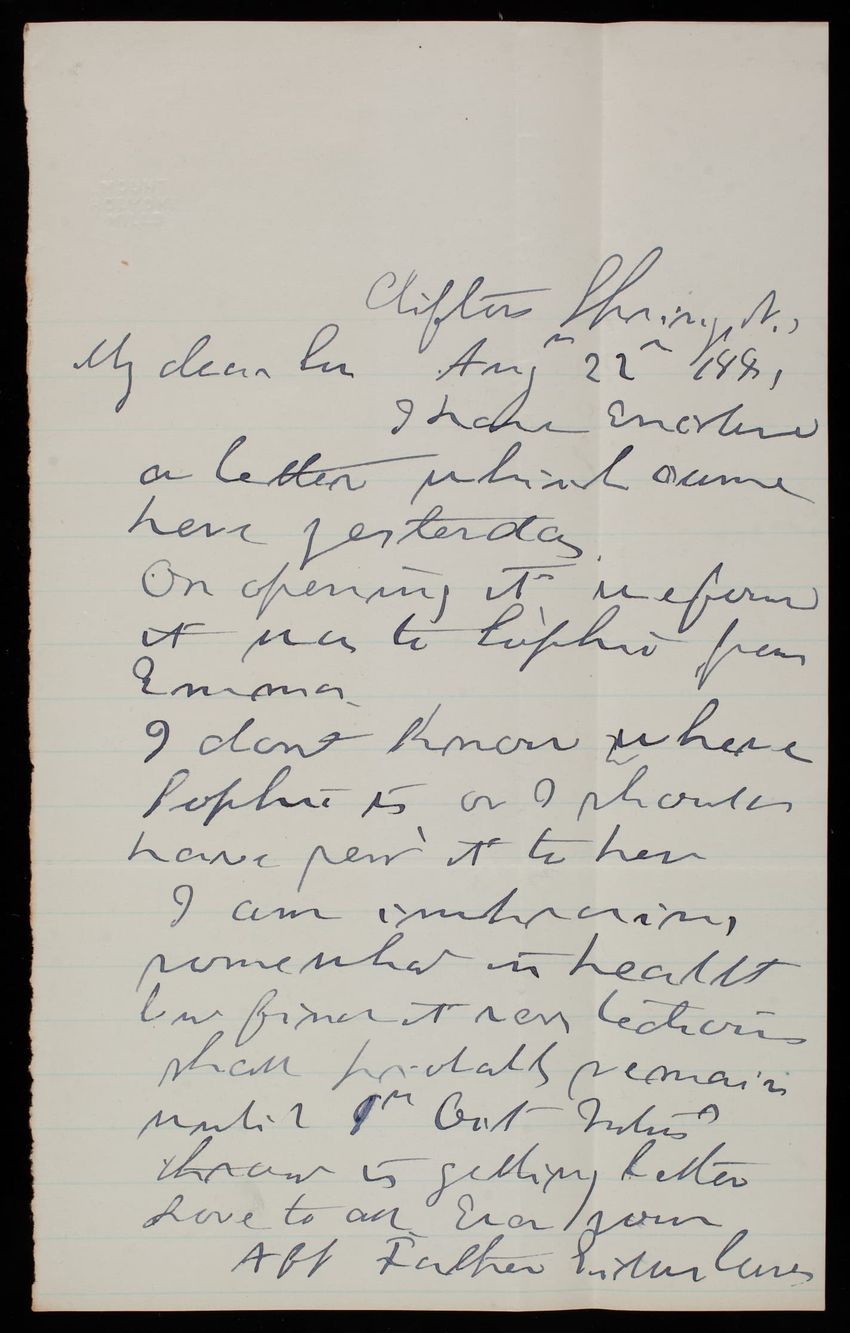 Clifton Springs, N.
My dear Son Aug 22n 188
I have Enclosed
a letter which came
here yesterday.
On opening it we found
it was to Sophie from
Emma.
I dont Know where
Sophie is or I should
have sent it to her
I am improving
somewhat in health
but find it very tedious
shall probably remain
until 1st Oct
throat is getting better
Love to all Ever your
Aff Father